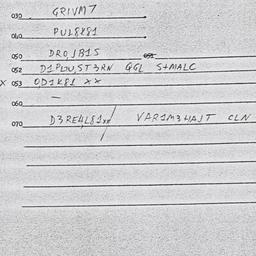 030 GRIVM7
040 PUL8K81
050 DROJB1S
052 D1PLUST3RN GGL S+MALC
X 053 OD1K81 XX
060 —
070 D3RE4L81xx / VAR1M3HAJT CLN